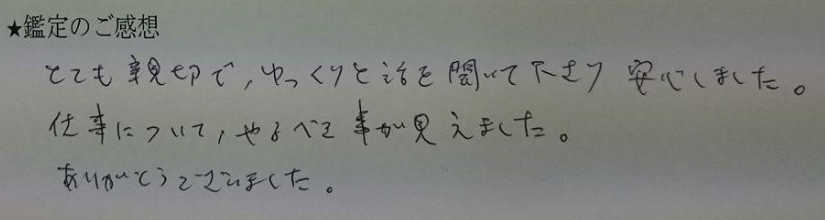 ★鑑定のご感想
とても親切で，ゆっくりと話を聞いて下さり 安心しました。
仕事について，やるべき事が見えました。
ありがとうございました。